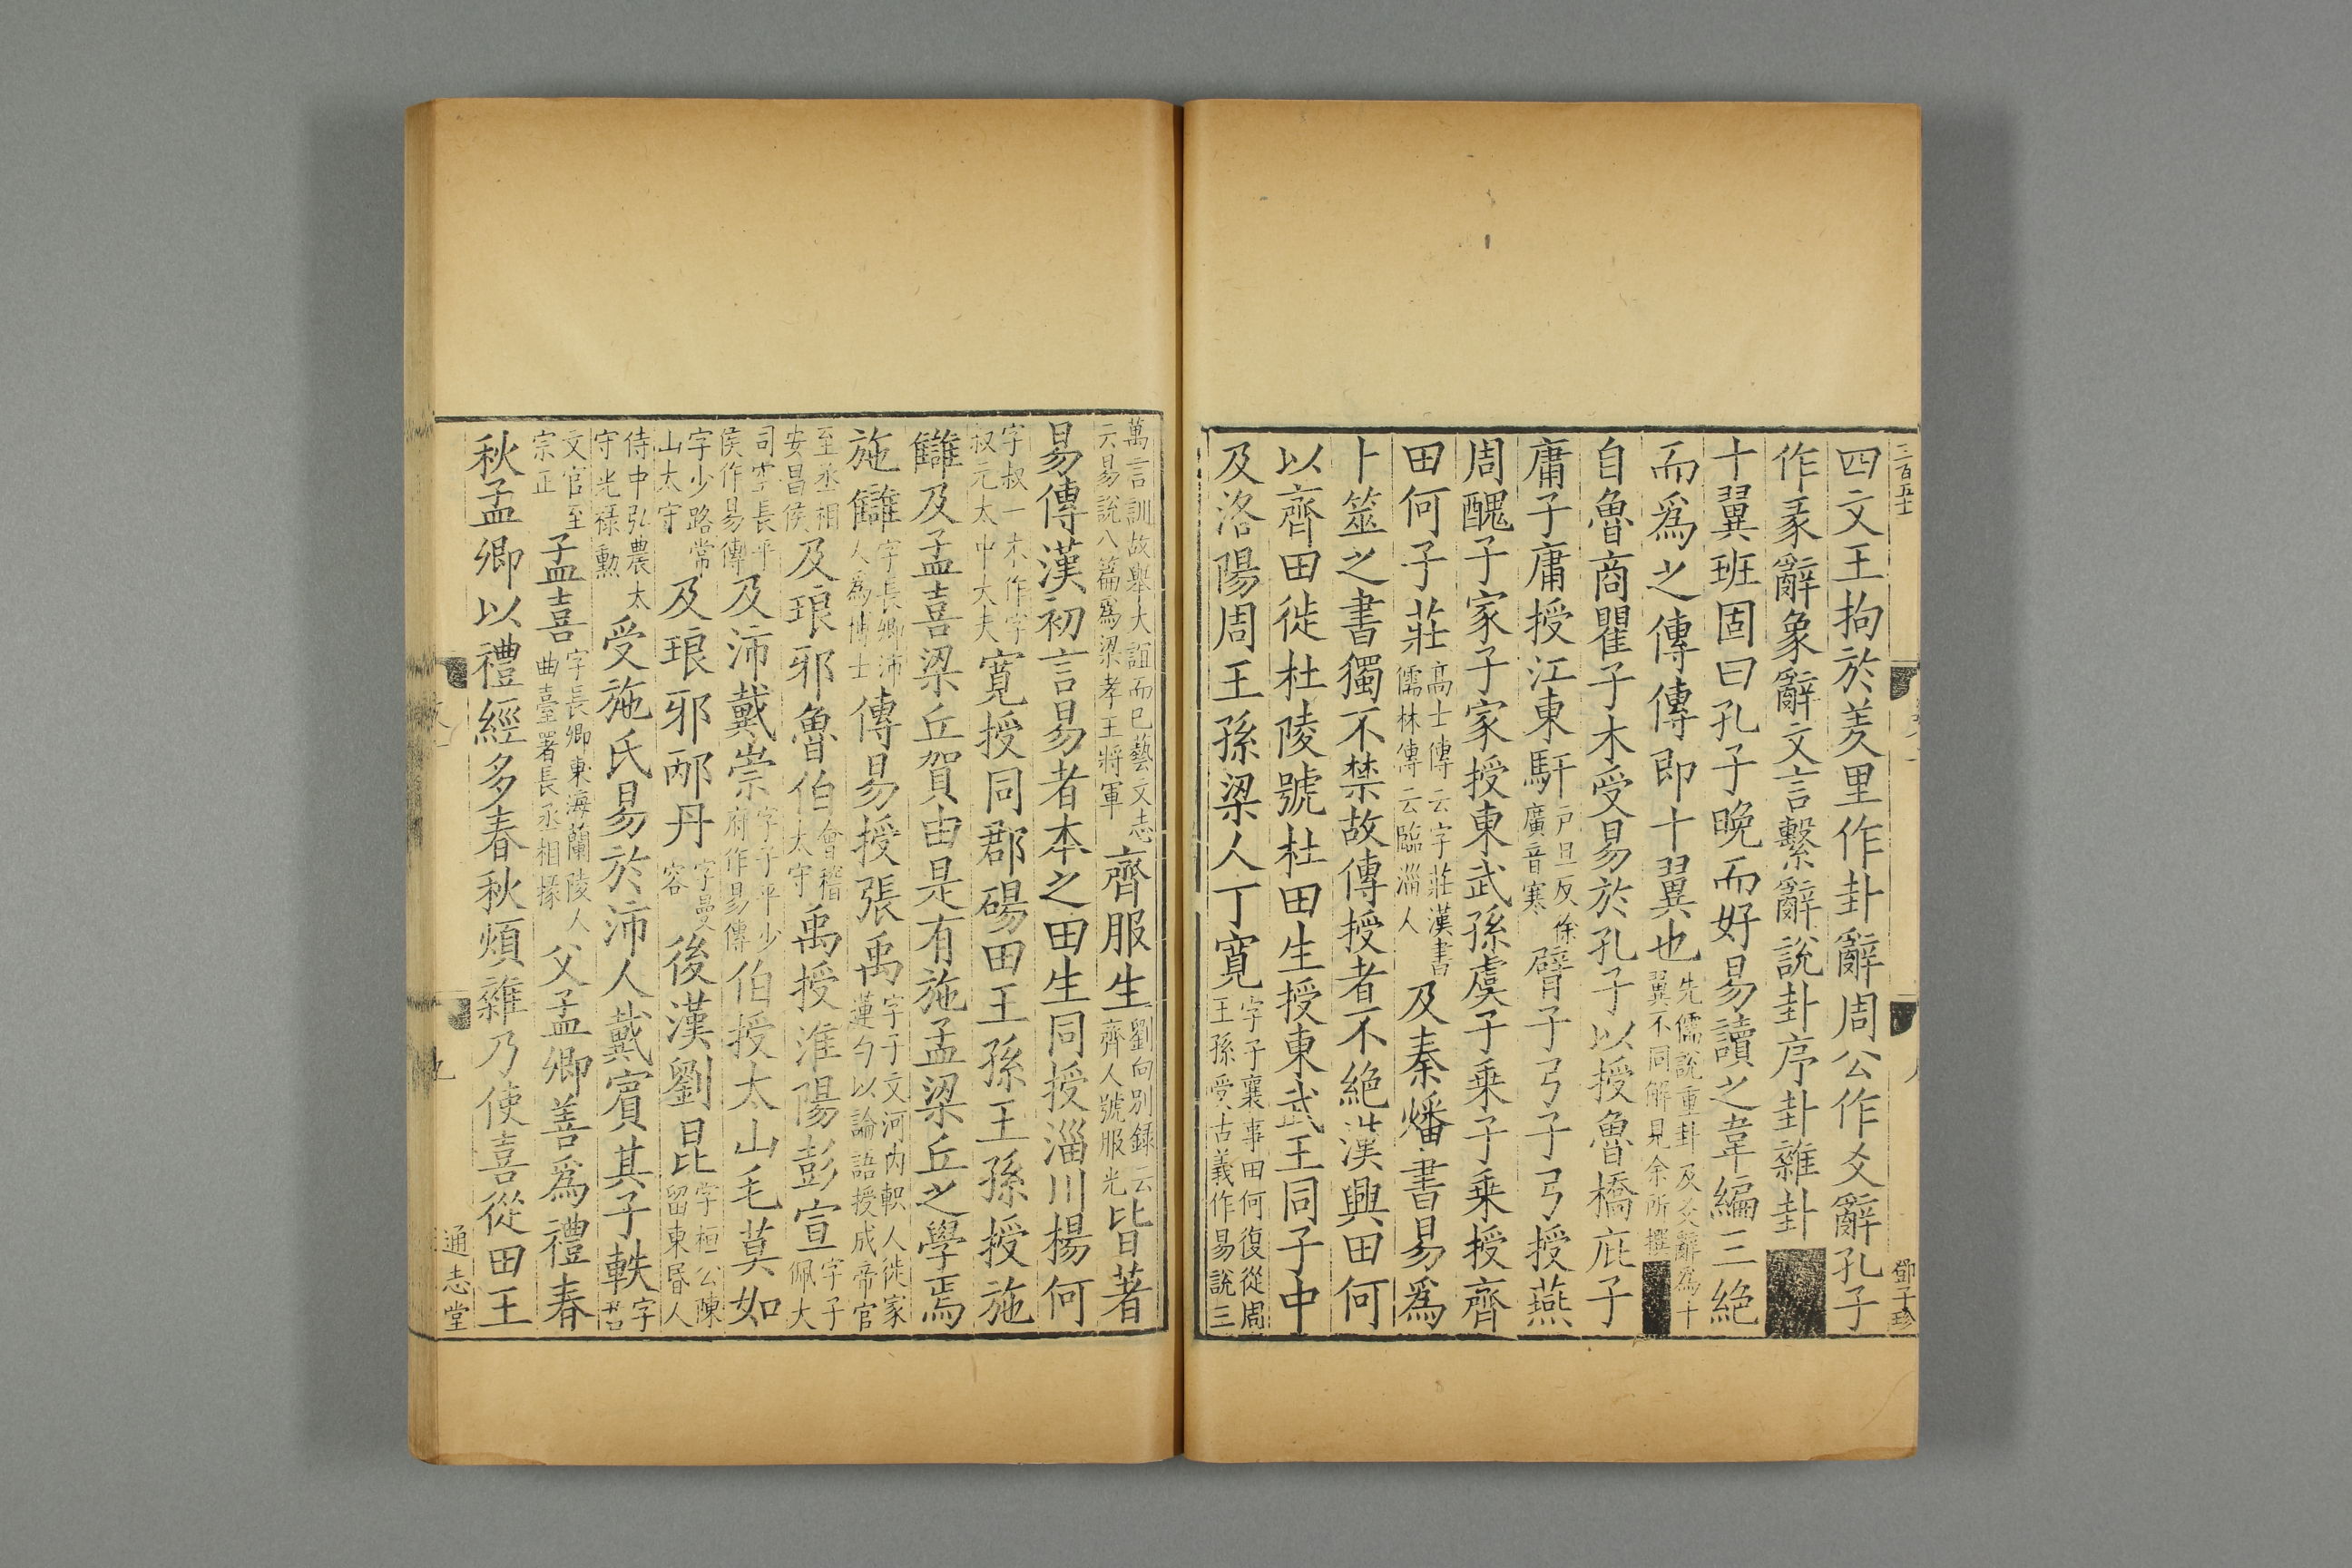 三百五十
鄧子珍
四文王拘於羑里作卦辭周公作爻辭孔子
作彖辭象辭文言繫辭說卦序卦雜卦
十翼班固曰孔子晚而好易讀之韋編三絕
而為之傳傳即十翼也先儒說重卦及爻辭為十翼不同解見余所撰
自魯商瞿子木受易於孔子以授魯橋庇子
庸子庸授江東馯戶旦反徐廣音寒臂子弓子弓授燕
周醜子家子家授東武孫虞子乗子乗授齊
田何子莊高士傳云字莊漢書儒林傳云臨淄人及秦燔書易為
卜筮之書獨不禁故傳授者不絕漢興田何
以齊田徙杜陵號杜田生授東武王同子中
及洛陽周王孫梁人丁寬字子襄事田何復從周王孫受古義作易說三
萬言訓故舉大誼而已藝文志云易說八篇為梁孝王將軍齊服生劉向別録云齊人號服光皆著
易傳漢初言易者本之田生同授淄川楊何
字叔一本作字叔元太中大夫寬授同郡碭田王孫王孫授施
讎及孟喜梁丘賀由是有施孟梁丘之學焉
施讎字長卿沛人為博士傳易授張禹字子文河内軹人徙家蓮勺以論語授成帝官
至丞相安昌侯及琅邪魯伯會稽太守禹授淮陽彭宣字子佩大
司空長平侯作易傳及沛戴崇字子平少府作易傳伯授太山毛莫如
字少路常山太守及琅邪邴丹字曼容後漢劉昆字桓公陳留東昬人
侍中弘農太守光祿勳受施氏易於沛人戴賓其子軼字君
文官至宗正孟喜字長卿東海蘭陵人曲臺署長丞相掾父孟卿善為禮春
秋孟卿以禮經多春秋煩雜乃使喜從田王
九
通志堂